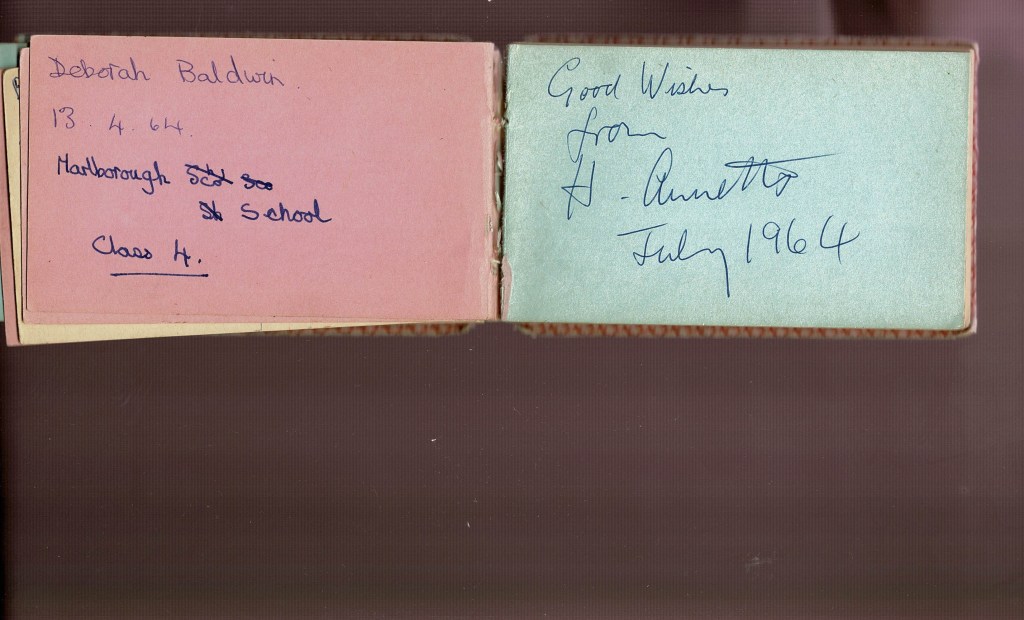 Deborah Baldwin.
13. 4. 64.
Marlborough
School
Class 4.
Good Wishes
from
H. Annetts
July 1964